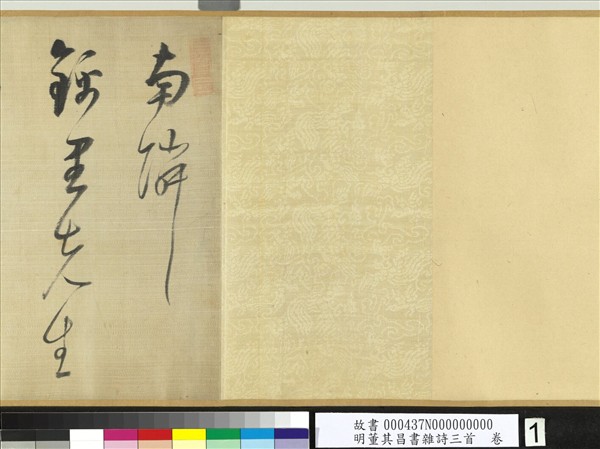 南隣
錦里先生
故書 000437N000000000
明董其昌書雜詩三首 卷
1